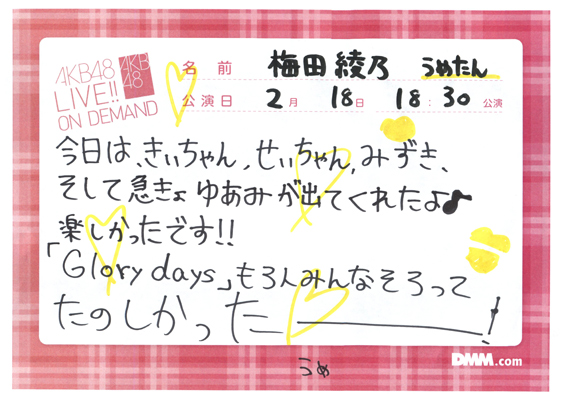 AKB48
LIVE!!
ON DEMAND
AKB
48
名前 梅田綾乃 うめたん
公演日 2月 18日 18:30公演
今日は、きぃちゃん、せぃちゃん、みずき、
そして急きょ ゆあみが出てくれたよ♪
楽しかったです!!
「Glory days」も3人みんなそろって
たのしかったーーー!
DMM.com
うめ